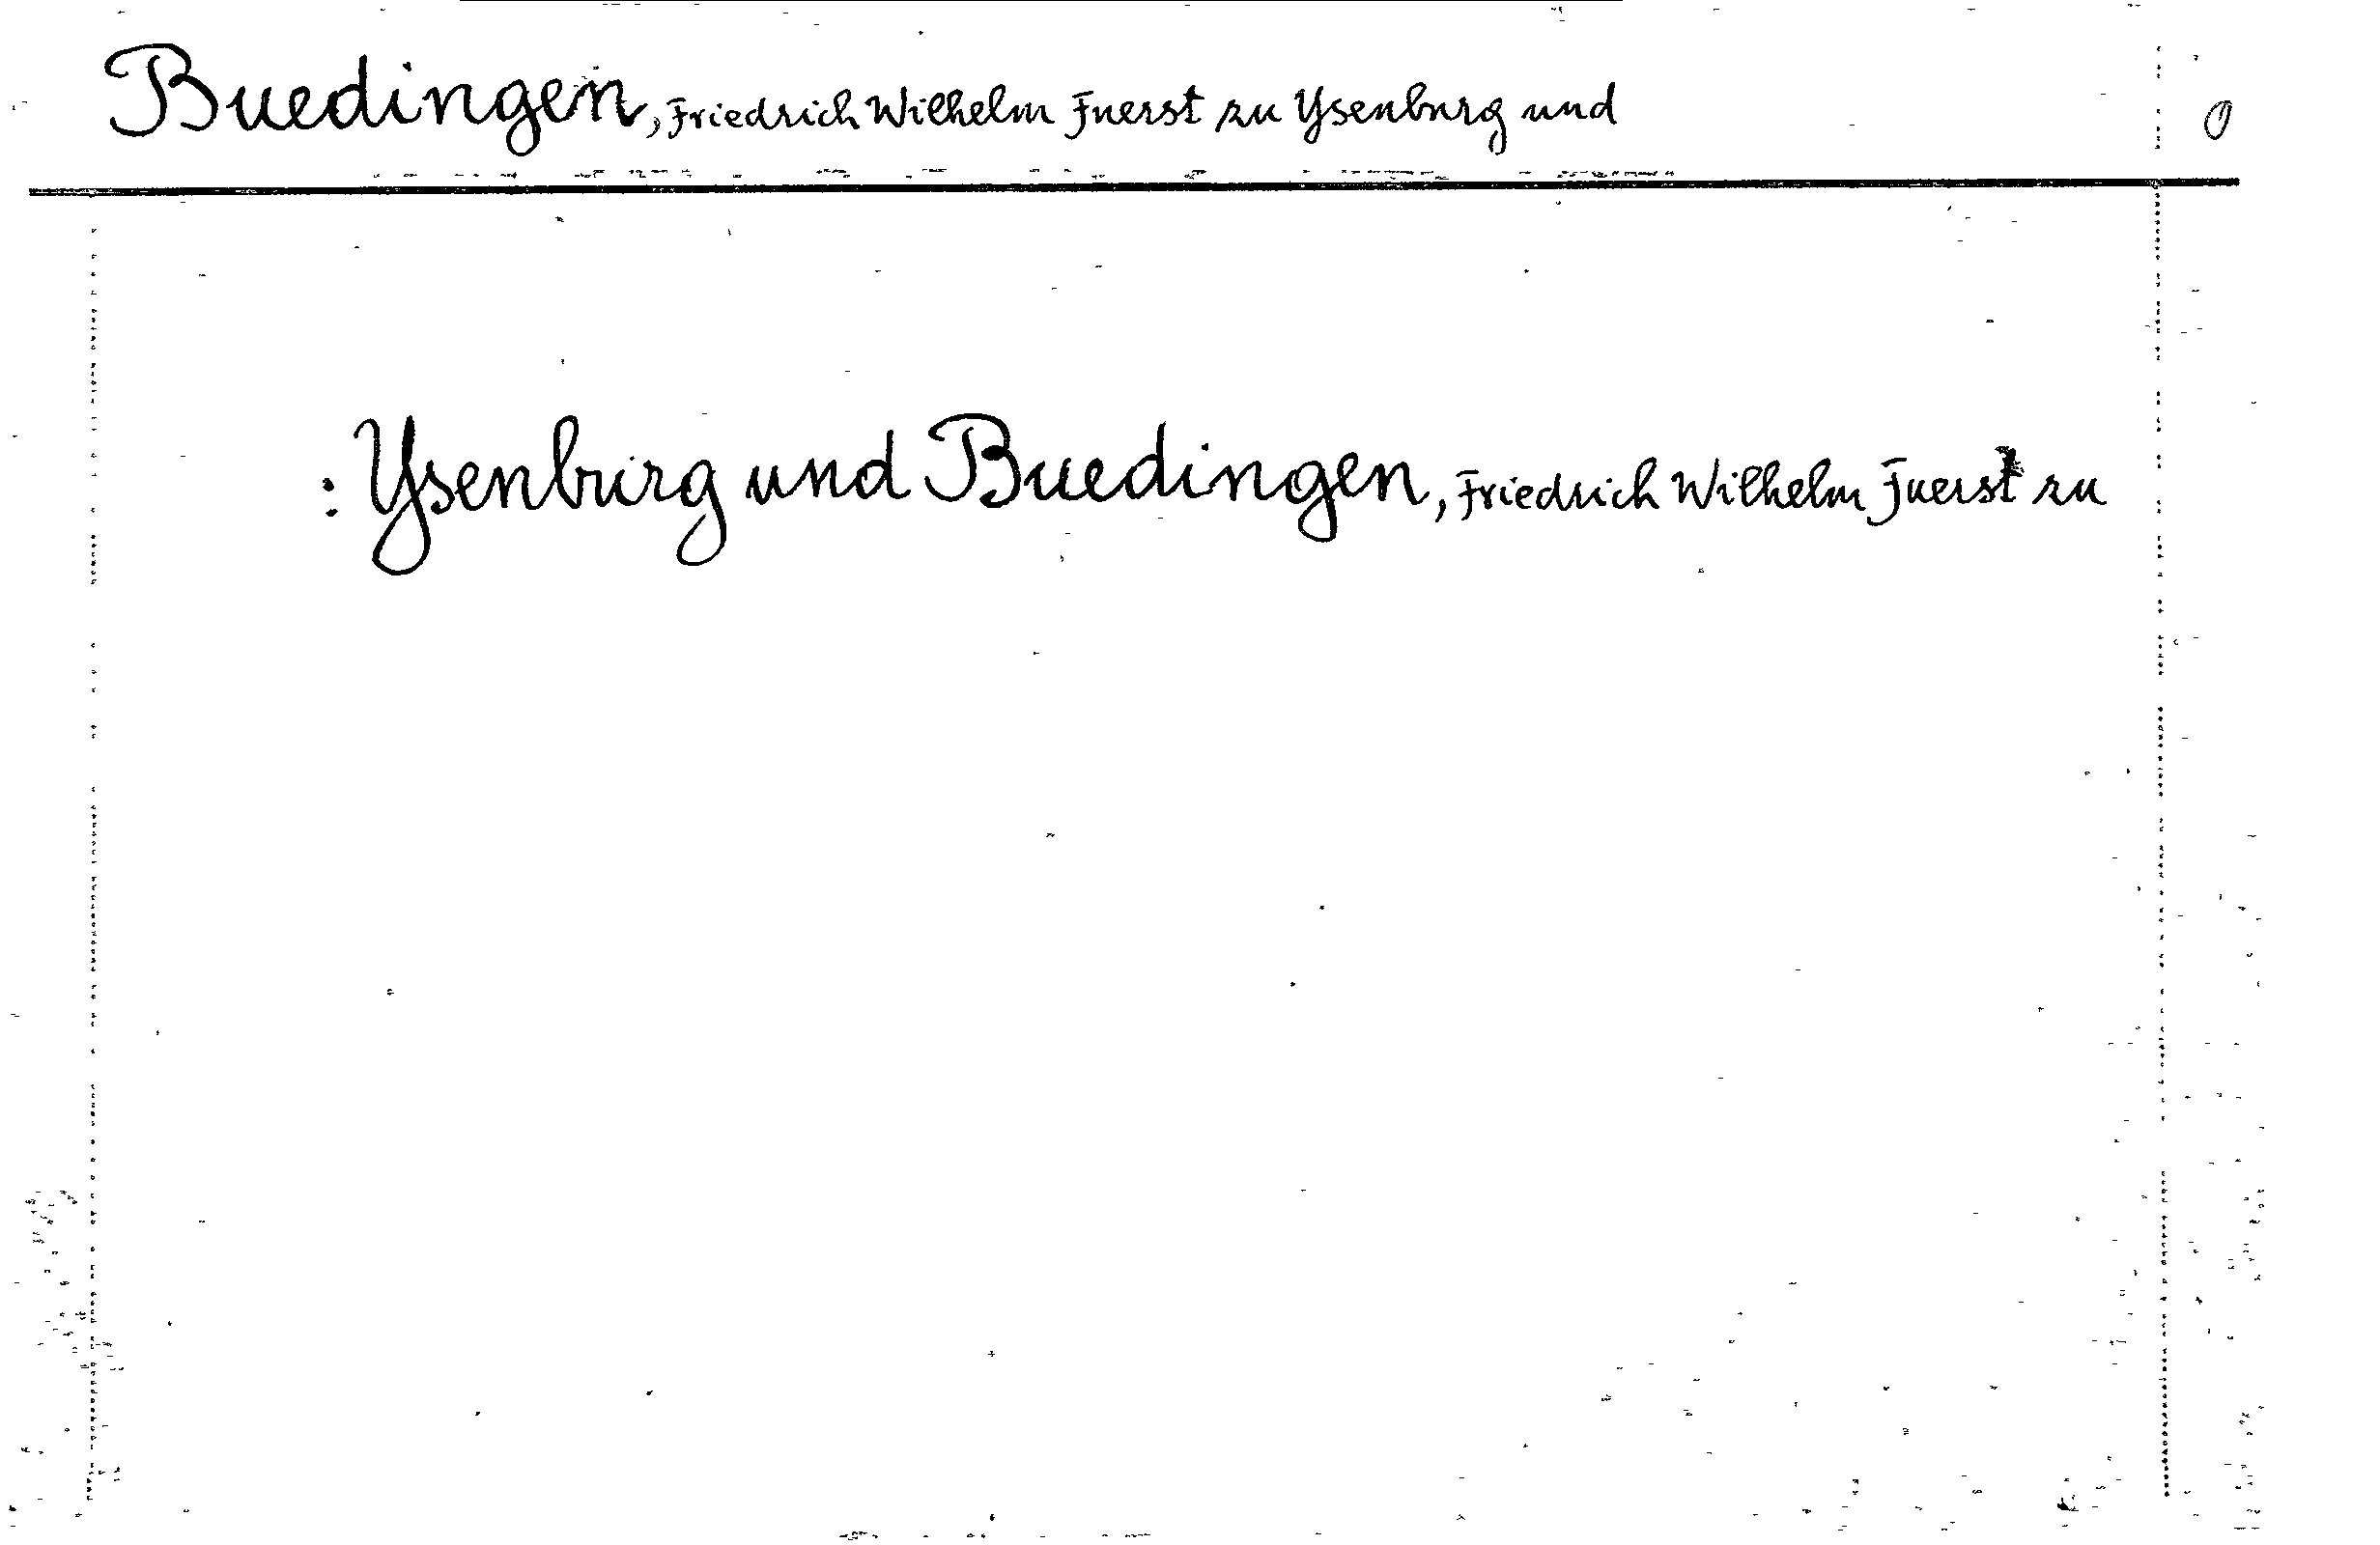 Buedingen, Friedrich Wilhelm Fuerst zu Ysenburg und 0
: Ysenburg und Buedingen, Friedrich Wilhelm Fuerst zu